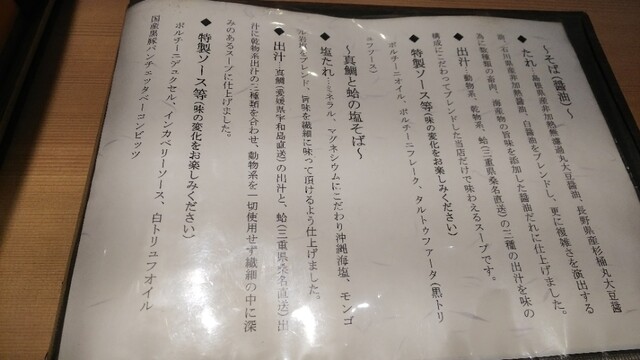 ～そば（醤油）～
◆たれ…島根県産非加熱無濾過丸大豆醤油、長野県産杉桶丸大豆醤
油、石川県産非加熱醤油、白醤油をブレンドし、更に複雑さを演出する
為に数種類の節肉、海産物の旨味を添加した醤油だれに仕上げました。
◆出汁…動物系、乾物系、蛤（三重県桑名直送）の三種の出汁を味の
構成にこだわってブレンドした当店だけで味わえるスープです。
◆特製ソース等（味の変化をお楽しみください）
ポルチーニオイル、ポルチーニフレーク、タルトゥファータ（黒トリ
ュフソース）
～真鯛と蛤の塩そば～
◆塩たれ…ミネラル、マグネシウムにこだわり沖縄海塩、モンゴ
ル岩塩をブレンド、旨味を繊細に味って頂けるよう仕上げました。
◆出汁…真鯛（愛媛県宇和島直送）の出汁と、蛤（三重県桑名直送）出
汁に乾物系出汁の三種類を合わせ、動物系を一切使用せず繊細の中に深
みのあるスープに仕上げました。
◆特製ソース等（味の変化をお楽しみください）
ポルチーニデュクセル、インカベリーソース、白トリュフオイル
国産黒豚パンチェッタベーコンビッツ